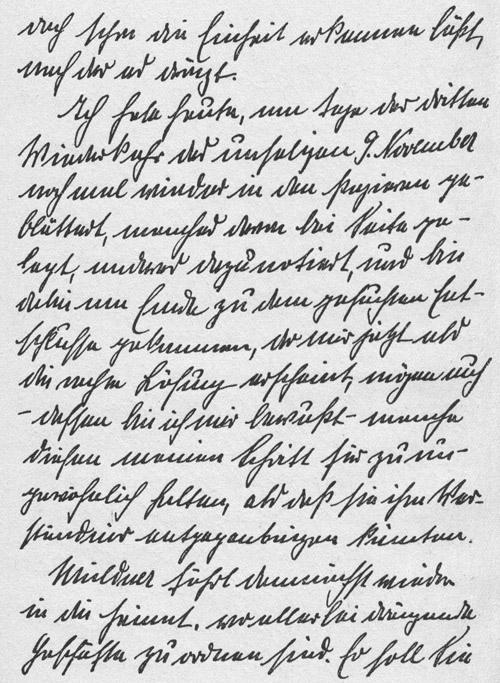 doch schon die Einheit erkennen läßt,
nach der es drängt.
Ich habe heute, am Tage der dritten
Wiederkehr des unseligen 9. November
noch mal wieder in den Papieren ge-
blättert, manches davon bei Seite ge-
legt, anderes dazu notiert, und bin
dabei am Ende zu dem gesuchten Ent-
schlusse gekommen, der mir jetzt als
die rechte Lösung erscheint, mögen auch
– dessen bin ich mir bewußt – manche
diesen meinen Schritt für zu un-
gewöhnlich halten, als daß sie ihm Ver-
ständnis entgegenbringen könnten.
Müldner fährt demnächst wieder
in die Heimat, wo allerlei drängende
Geschäfte zu ordnen sind. Er soll Sie